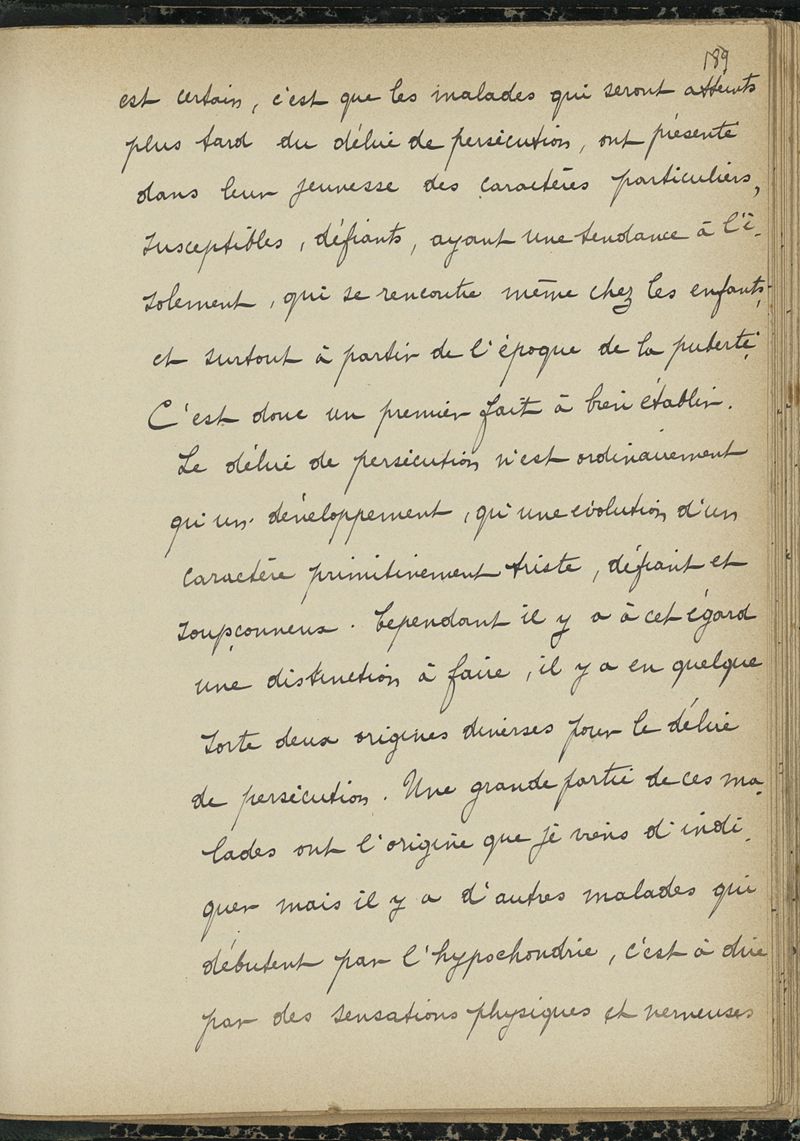 189
est certain, c'est que les malades qui seront atteints
plus tard du délire de persécution, ont présenté
dans leur jeunesse des caractères particuliers,
susceptibles, défiants, ayant une tendance à l'i-
solement, qui se rencontre même chez les enfants,
et surtout à partir de l'époque de la puberté.
C'est donc un premier fait à bien établir.
Le délire de persécution n'est ordinairement
qu'un développement, qu'une évolution d'un
caractère primitivement triste, défiant et
soupçonneux. Cependant il y a à cet égard
une distinction à faire, il y a en quelque
sorte deux origines diverses pour le délire
de persécution. Une grande partie de ces ma-
lades ont l'origine que je viens d'indi-
quer mais il y a d'autres malades qui
débutent par l'hypochondrie, c'est à dire
par des sensations physiques et nerveuses